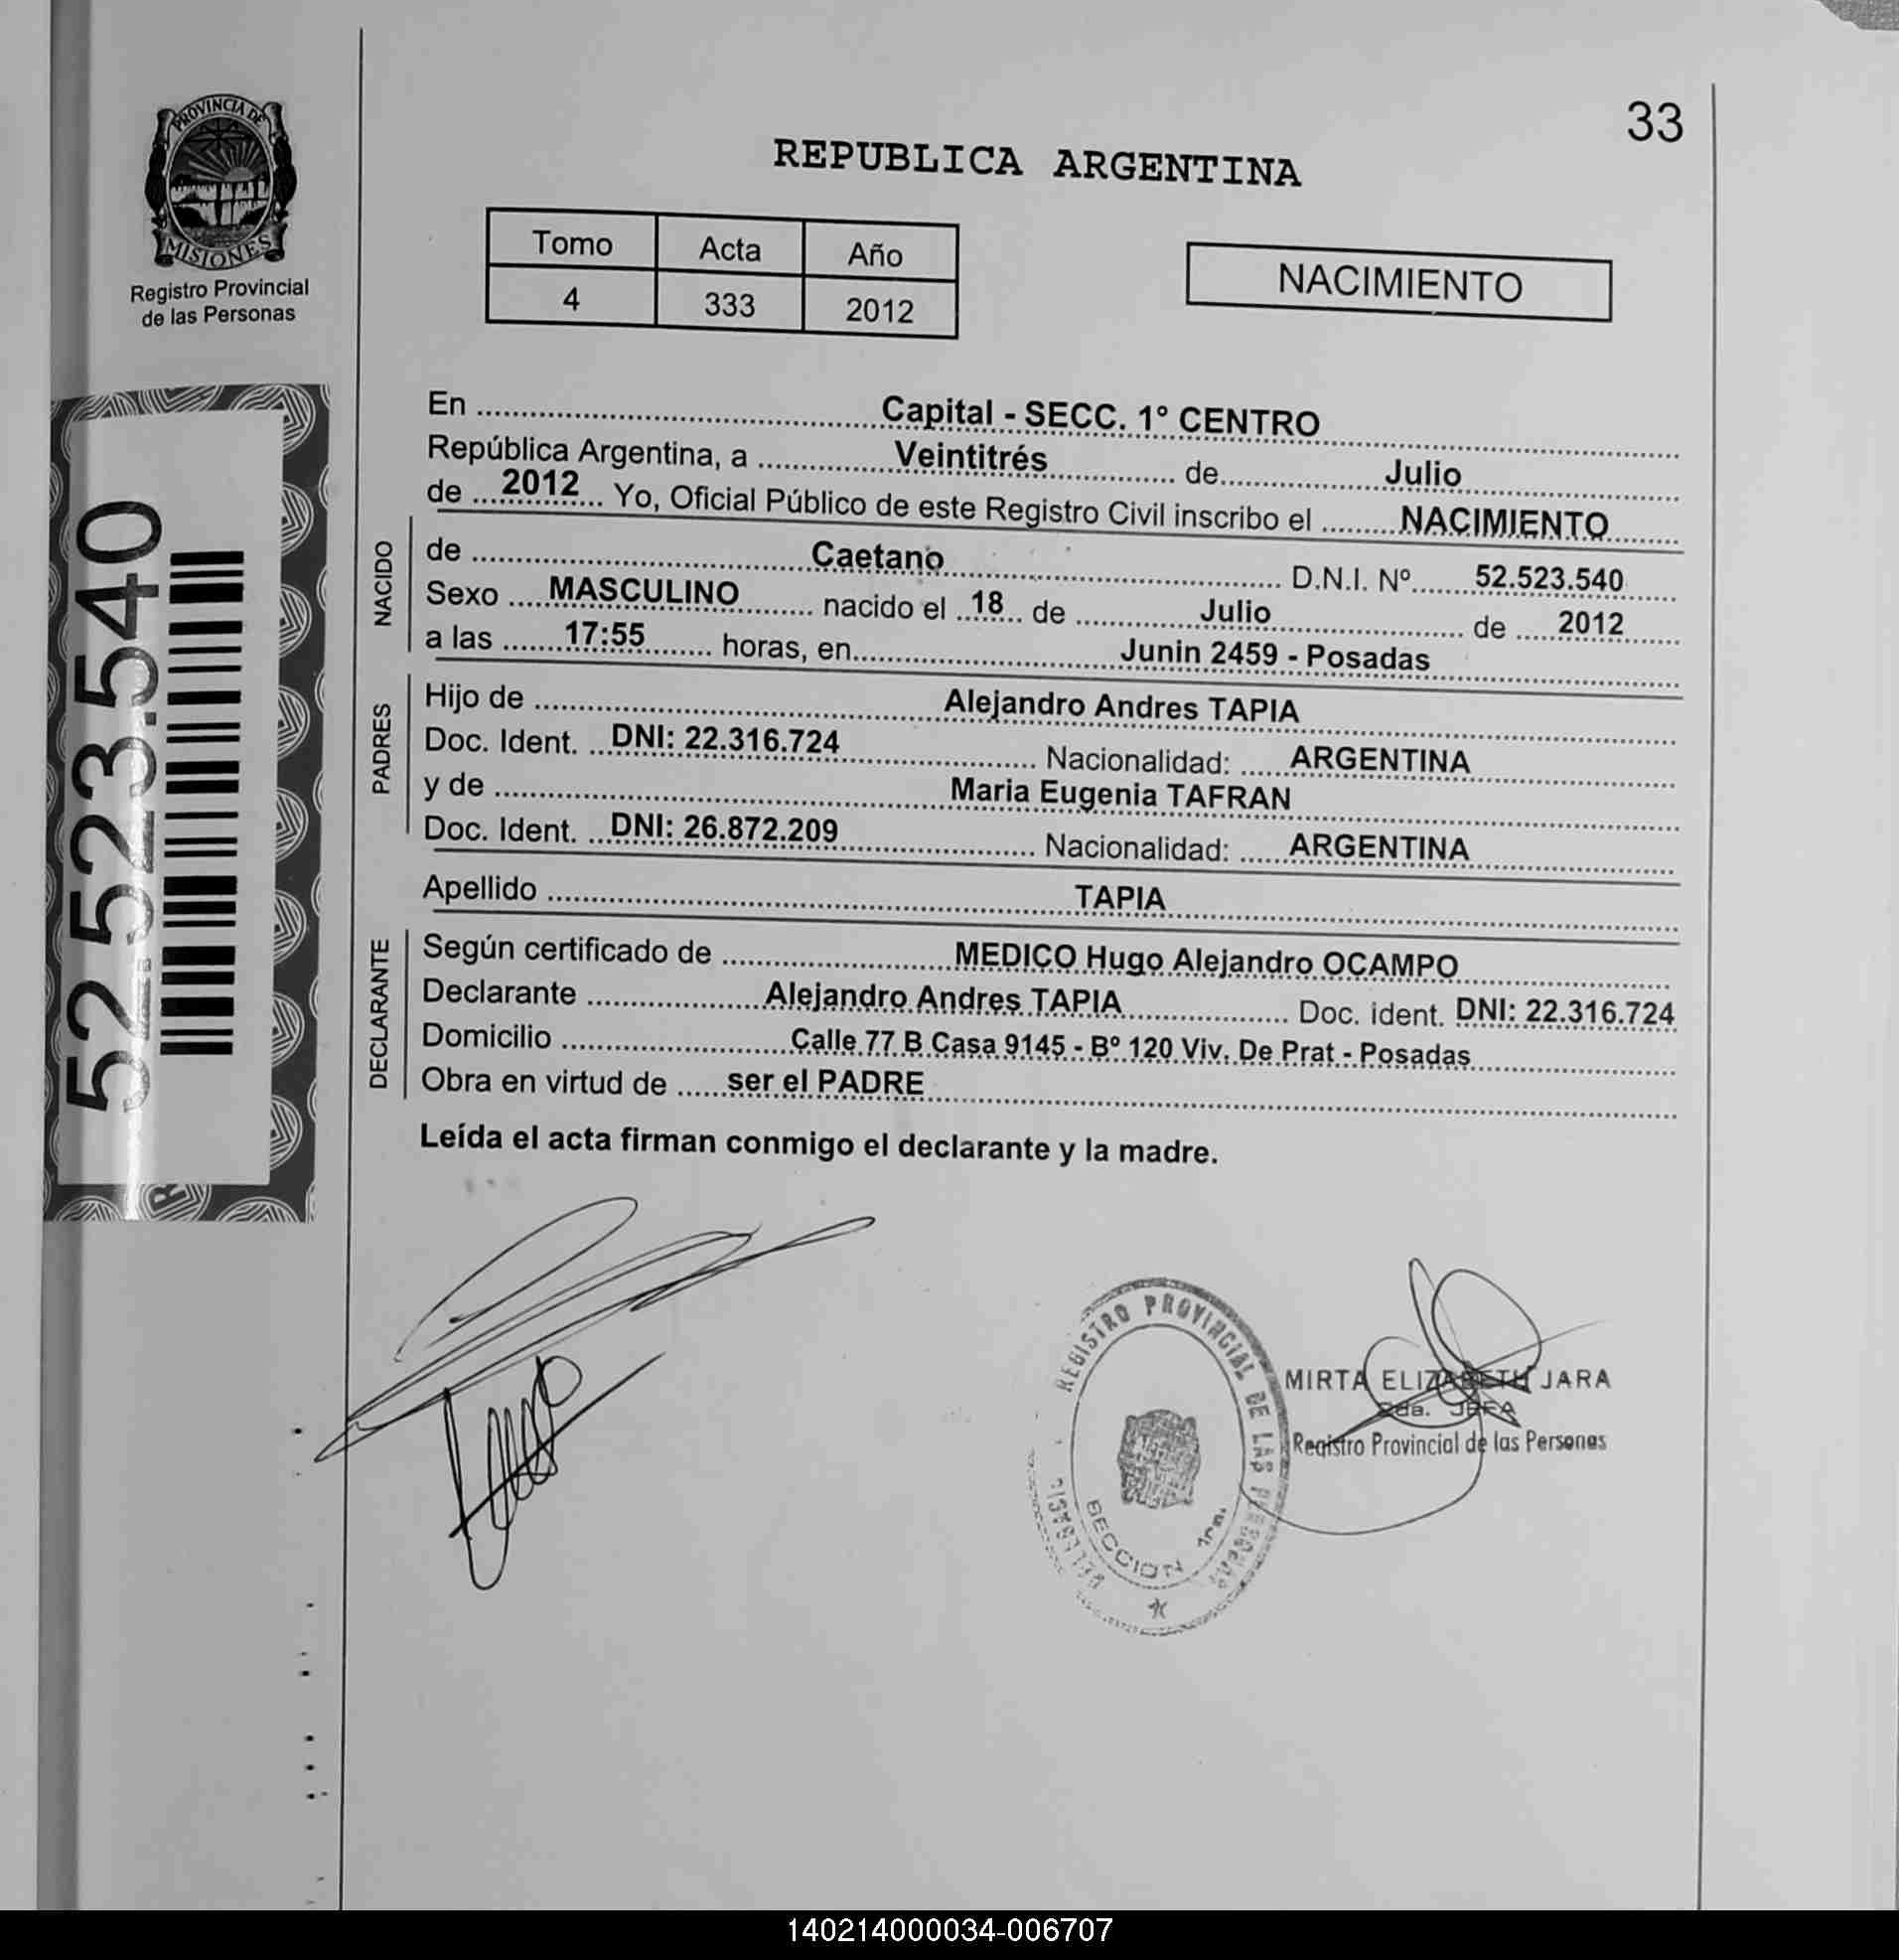 33
PROVINCIA DE
MISIONES
Registro Provincial
de las Personas
REPUBLICA ARGENTINA
Tomo Acta Año
4 333 2012
NACIMIENTO
52.523.540
En Capital - SECC. 1° CENTRO
República Argentina, a Veintitrés de Julio
de 2012 Yo, Oficial Público de este Registro Civil inscribo el NACIMIENTO
NACIDO
de Caetano D.N.I. Nº 52.523.540
Sexo MASCULINO nacido el 18 de Julio de 2012
a las 17:55 horas, en Junin 2459 - Posadas
PADRES
Hijo de Alejandro Andres TAPIA
Doc. Ident. DNI: 22.316.724 Nacionalidad: ARGENTINA
y de Maria Eugenia TAFRAN
Doc. Ident. DNI: 26.872.209 Nacionalidad: ARGENTINA
Apellido TAPIA
DECLARANTE
Según certificado de MEDICO Hugo Alejandro OCAMPO
Declarante Alejandro Andres TAPIA Doc. ident. DNI: 22.316.724
Domicilio Calle 77 B Casa 9145 - Bº 120 Viv. De Prat - Posadas
Obra en virtud de ser el PADRE
Leída el acta firman conmigo el declarante y la madre.
REGISTRO PROVINCIAL DE LAS PERSONAS
SECCION 1ra.
MIRTA ELIZABETH JARA
2da. JEFA
Registro Provincial de las Personas
140214000034-006707